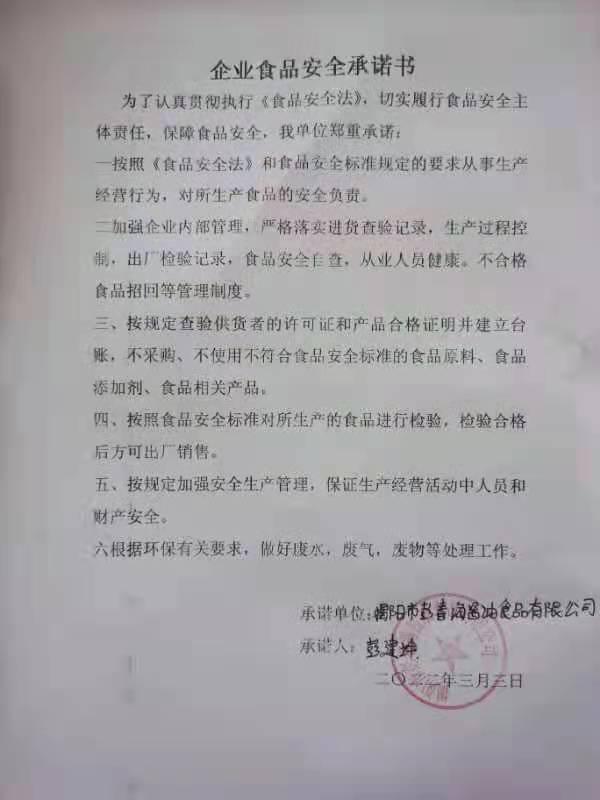 企业食品安全承诺书
为了认真贯彻执行《食品安全法》，切实履行食品安全主
体责任，保障食品安全，我单位郑重承诺：
一按照《食品安全法》和食品安全标准规定的要求从事生产
经营行为，对所生产食品的安全负责。
二加强企业内部管理，严格落实进货查验记录，生产过程控
制，出厂检验记录，食品安全自查，从业人员健康。不合格
食品招回等管理制度。
三、按规定查验供货者的许可证和产品合格证明并建立台
账，不采购、不使用不符合食品安全标准的食品原料、食品
添加剂、食品相关产品。
四、按照食品安全标准对所生产的食品进行检验，检验合格
后方可出厂销售。
五、按规定加强安全生产管理，保证生产经营活动中人员和
财产安全。
六根据环保有关要求，做好废水，废气，废物等处理工作。
承诺单位：揭阳市彭喜海酱油食品有限公司
承诺人：彭建坤
二〇二二年三月三日